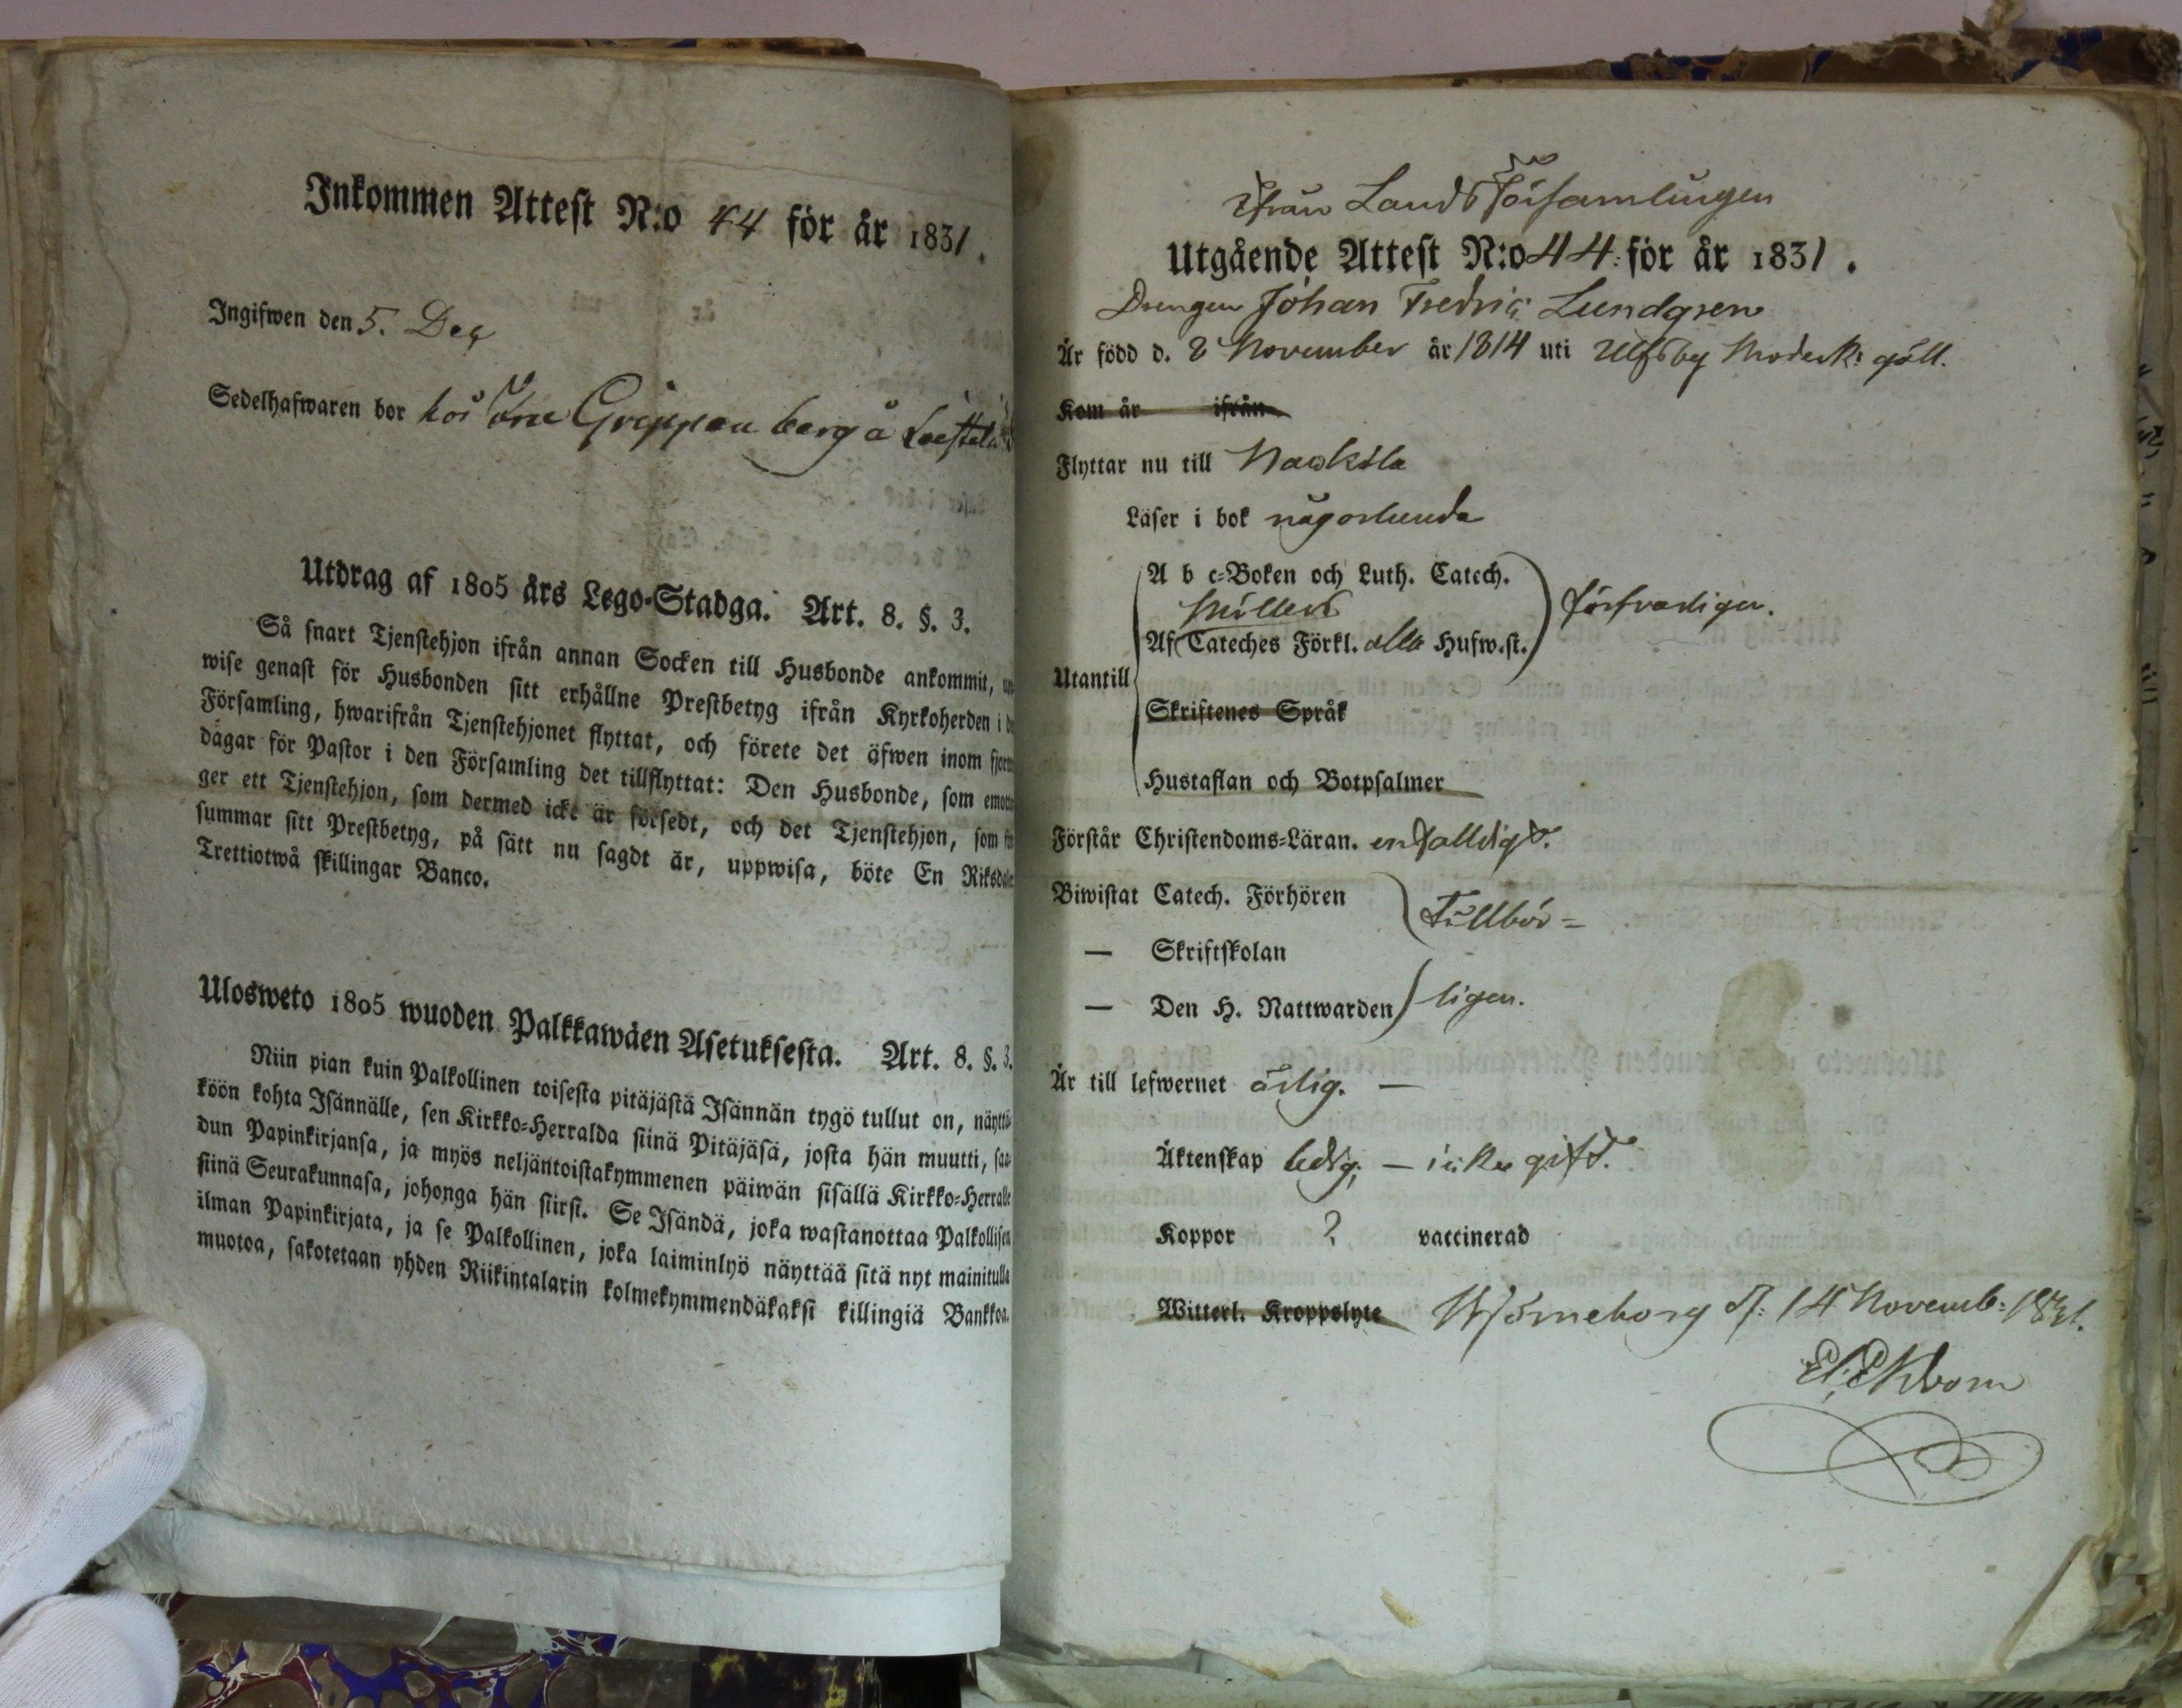 Inkommen Attest N:o 44 för år 1831.
Ingifwen den 5. Dec
Sedelhafwaren bor hos
Utdrag af 1805 års Lego-Stadga. Art. 8. §. 3.
Så snart Tjenstehjon ifrån annan Socken till Husbonde ankommit,
wise genast för Husbonden sitt erhållne Prestbetyg ifrån Kyrkoherden i
Församling, hwarifrån Tjenstehjonet flyttat, och förete det äfwen inom
dagar för Pastor i den Församling det tillflyttat: Den Husbonde, som
ger ett Tjenstehjon, som dermed icke är försedt, och det Tjenstehjon, som
summar sitt Prestbetyg, på sätt nu sagdt är, uppwisa, böte En
Trettiotwå skillingar Banco.
Ulosweto 1805 wuoden Palkkawäen Asetuksesta. Art. 8. §. 3.
Niin pian kuin Palkollinen toisesta pitäjästä Isännän tygö tullut on, näyttä-
köön kohta Isännälle, sen Kirkko-Herralda siinä Pitäjäsä, josta hän muutti, saa-
dun Papinkirjansa, ja myös neljäntoistakymmenen päiwän sisällä Kirkko-Herralle
siinä Seurakunnasa, johonga hän siirsi. Se Isändä, joka wastanottaa Palkollisen
ilman Papinkirjata, ja se Palkollinen, joka laiminlyö näyttää sitä nyt mainitulla
muotoa, sakotetaan yhden Riikintalarin kolmekymmendäkaksi killingiä Bankkoa.
Ifrån Lands Församlingen
Utgående Attest N:o 44. för år 1831.
Drengen Johan Fredric Lundgren
Är född d. 8 November år 1814 uti Ulfsby
Kom år ifrån
Flyttar nu till
Läser i bok någorlunda
A b c-Boken och Luth. Catech.
Möllers
försvarligen.
Af Cateches Förkl. alla Hufw.st.
Utantill
Skriftenes Språk
Hustaflan och Botpsalmer
Förstår Christendoms-Läran. enfalldigt.
Biwistat Catech. Förhören
Tillbör=
— Skriftskolan
— Den H. Nattwarden ligen.
Är till lefwernet ärlig. —
Äktenskap ledig, — icke gift.
Koppor ? vaccinerad
Witterl. Kroppslyte
Björneborg d. 14 Novemb: 1831.